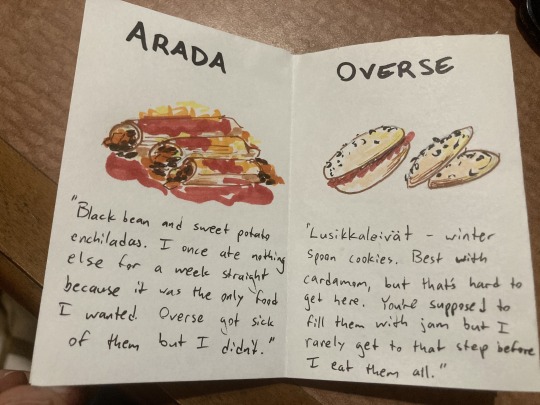 ARADA
"Black bean and sweet potato
enchiladas. I once ate nothing
else for a week straight
because it was the only food
I wanted. Overse got sick
of them but I didn't."
OVERSE
"Lusikkaleivät - winter
spoon cookies. Best with
cardamom, but that's hard to
get here. You're supposed to
fill them with jam but I
rarely get to that step before
I eat them all."